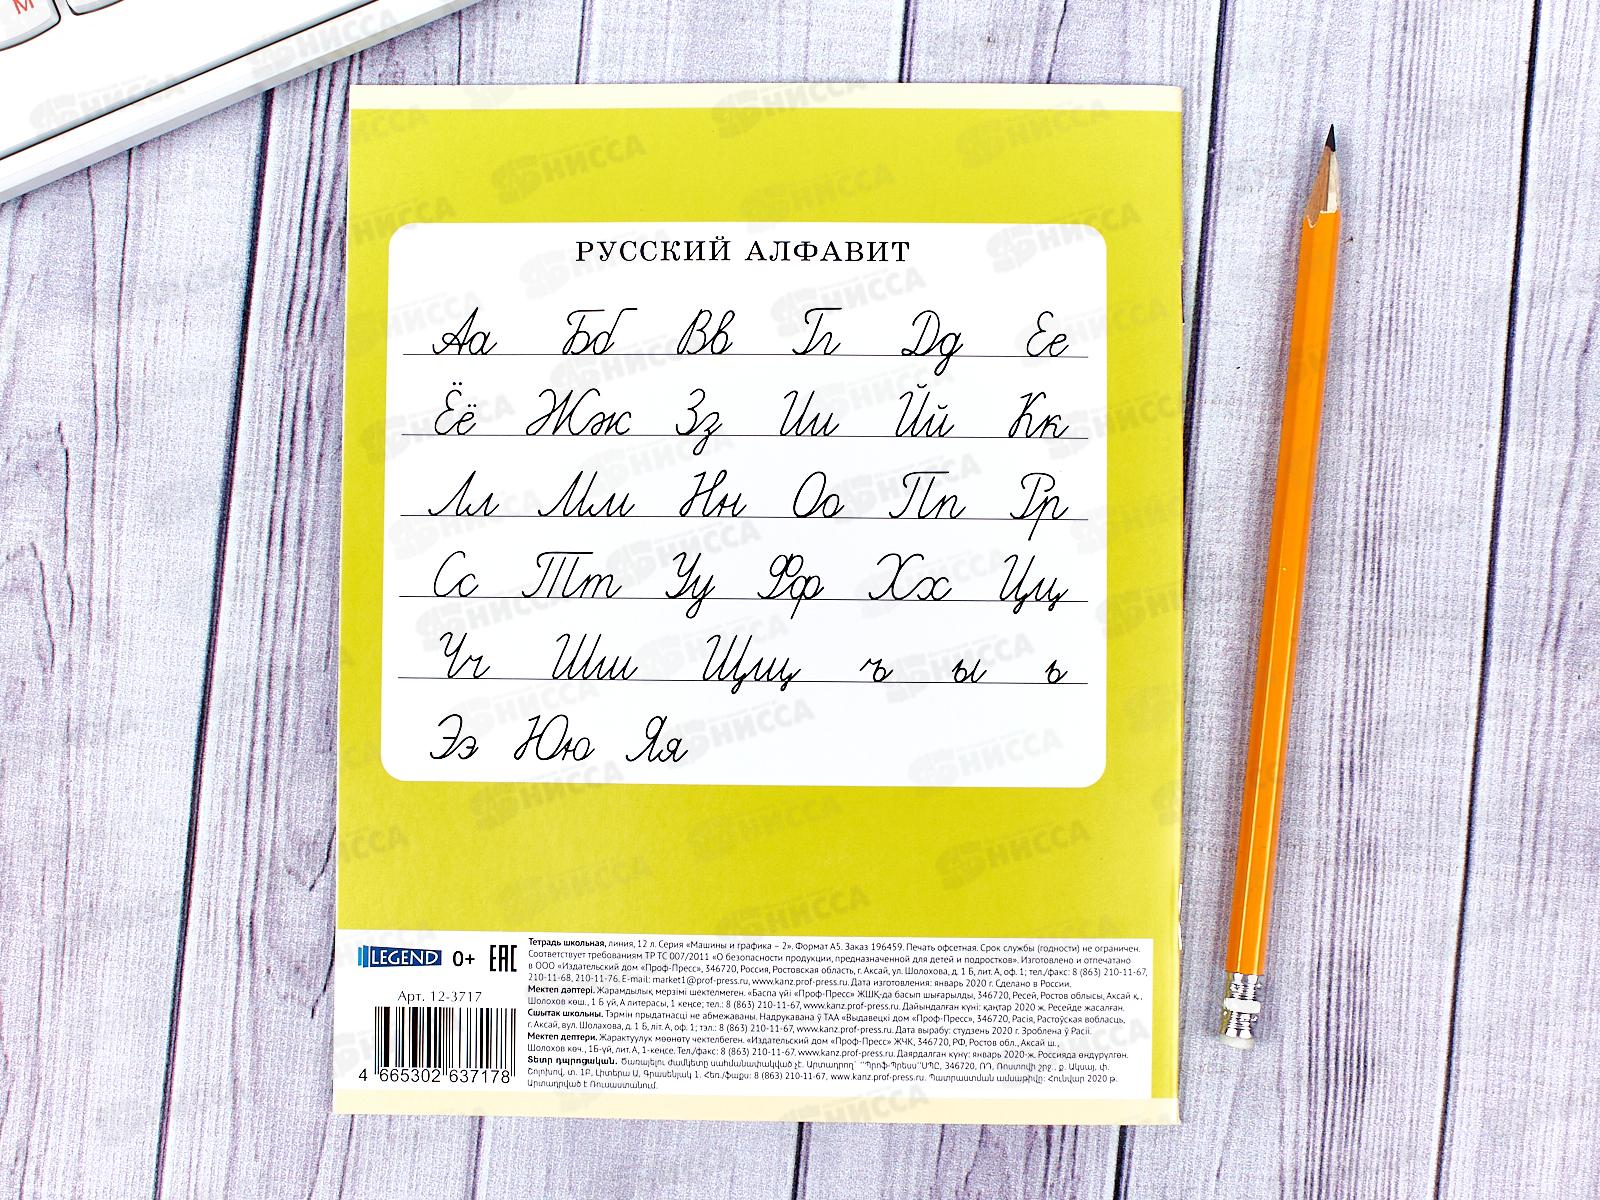 РУССКИЙ АЛФАВИТ
Аа Бб Вв Гг Дд Ее
Ёё Жж Зз Ии Йй Кк
Лл Мм Нн Оо Пп Рр
Сс Тт Уу Фф Хх Цц
Чч Шш Щщ ъ ы ь
Ээ Юю Яя
LEGEND 0+ EAC
Арт. 12-3717
4 665302 637178
Тетрадь школьная, линия, 12 л. Серия «Машины и графика – 2». Формат А5. Заказ 196459. Печать офсетная. Срок службы (годности) не ограничен.
Соответствует требованиям ТР ТС 007/2011 «О безопасности продукции, предназначенной для детей и подростков». Изготовлено и отпечатано
в ООО «Издательский дом «Проф-Пресс», 346720, Россия, Ростовская область, г. Аксай, ул. Шолохова, д. 1 Б, лит. А, оф. 1; тел./факс: 8 (863) 210-11-67,
210-11-68, 210-11-76. E-mail: market1@prof-press.ru, www.kanz.prof-press.ru. Дата изготовления: январь 2020 г. Сделано в России.
Мектеп дәптері. Жарамдылық мерзімі шектелмеген. «Баспа үйі «Проф-Пресс» ЖШҚ-да басып шығарылды, 346720, Ресей, Ростов облысы, Аксай қ.,
Шолохов көш., 1 Б үй, А литерасы, 1 кеңсе; тел.: 8 (863) 210-11-67, www.kanz.prof-press.ru. Дайындалған күні: қаңтар 2020 ж. Ресейде жасалған.
Сшытак школьны. Тэрмін прыдатнасці не абмежаваны. Надрукавана ў ТАА «Выдавецкі дом «Проф-Пресс», 346720, Расія, Растоўская вобласць,
г. Аксай, вул. Шолахова, д. 1 Б, літ. А, оф. 1; тэл.: 8 (863) 210-11-67, www.kanz.prof-press.ru. Дата вырабу: студзень 2020 г. Зроблена ў Расіі.
Мектеп дептери. Жарактуулук мөөнөтү чектелбеген. «Издательский дом «Проф-Пресс» ЖЧК, 346720, РФ, Ростов обл., Аксай ш.,
Шолохов көч., 1Б-үй, лит. А, 1-кеңсе. Тел./факс: 8 (863) 210-11-67. www.kanz.prof-press.ru. Даярдалган күнү: январь 2020-ж. Россияда өндүрүлгөн.
Տետր դպրոցական. Ծառայելու ժամկետը սահմանափակված չէ. Արտադրող՝ "Պրոֆ-Պրես" ՍՊԸ, 346720, ՌԴ, Ռոստովի շրջ., ք. Ակսայ, փ.
Շոլոխով, տ. 1Բ, Լիտերա Ա, Գրասենյակ 1. Հեռ./ֆաքս: 8 (863) 210-11-67, www.kanz.prof-press.ru. Պատրաստման ամսաթիվը: Հունվար 2020 թ.
Արտադրված է Ռուսաստանում.
НИССА